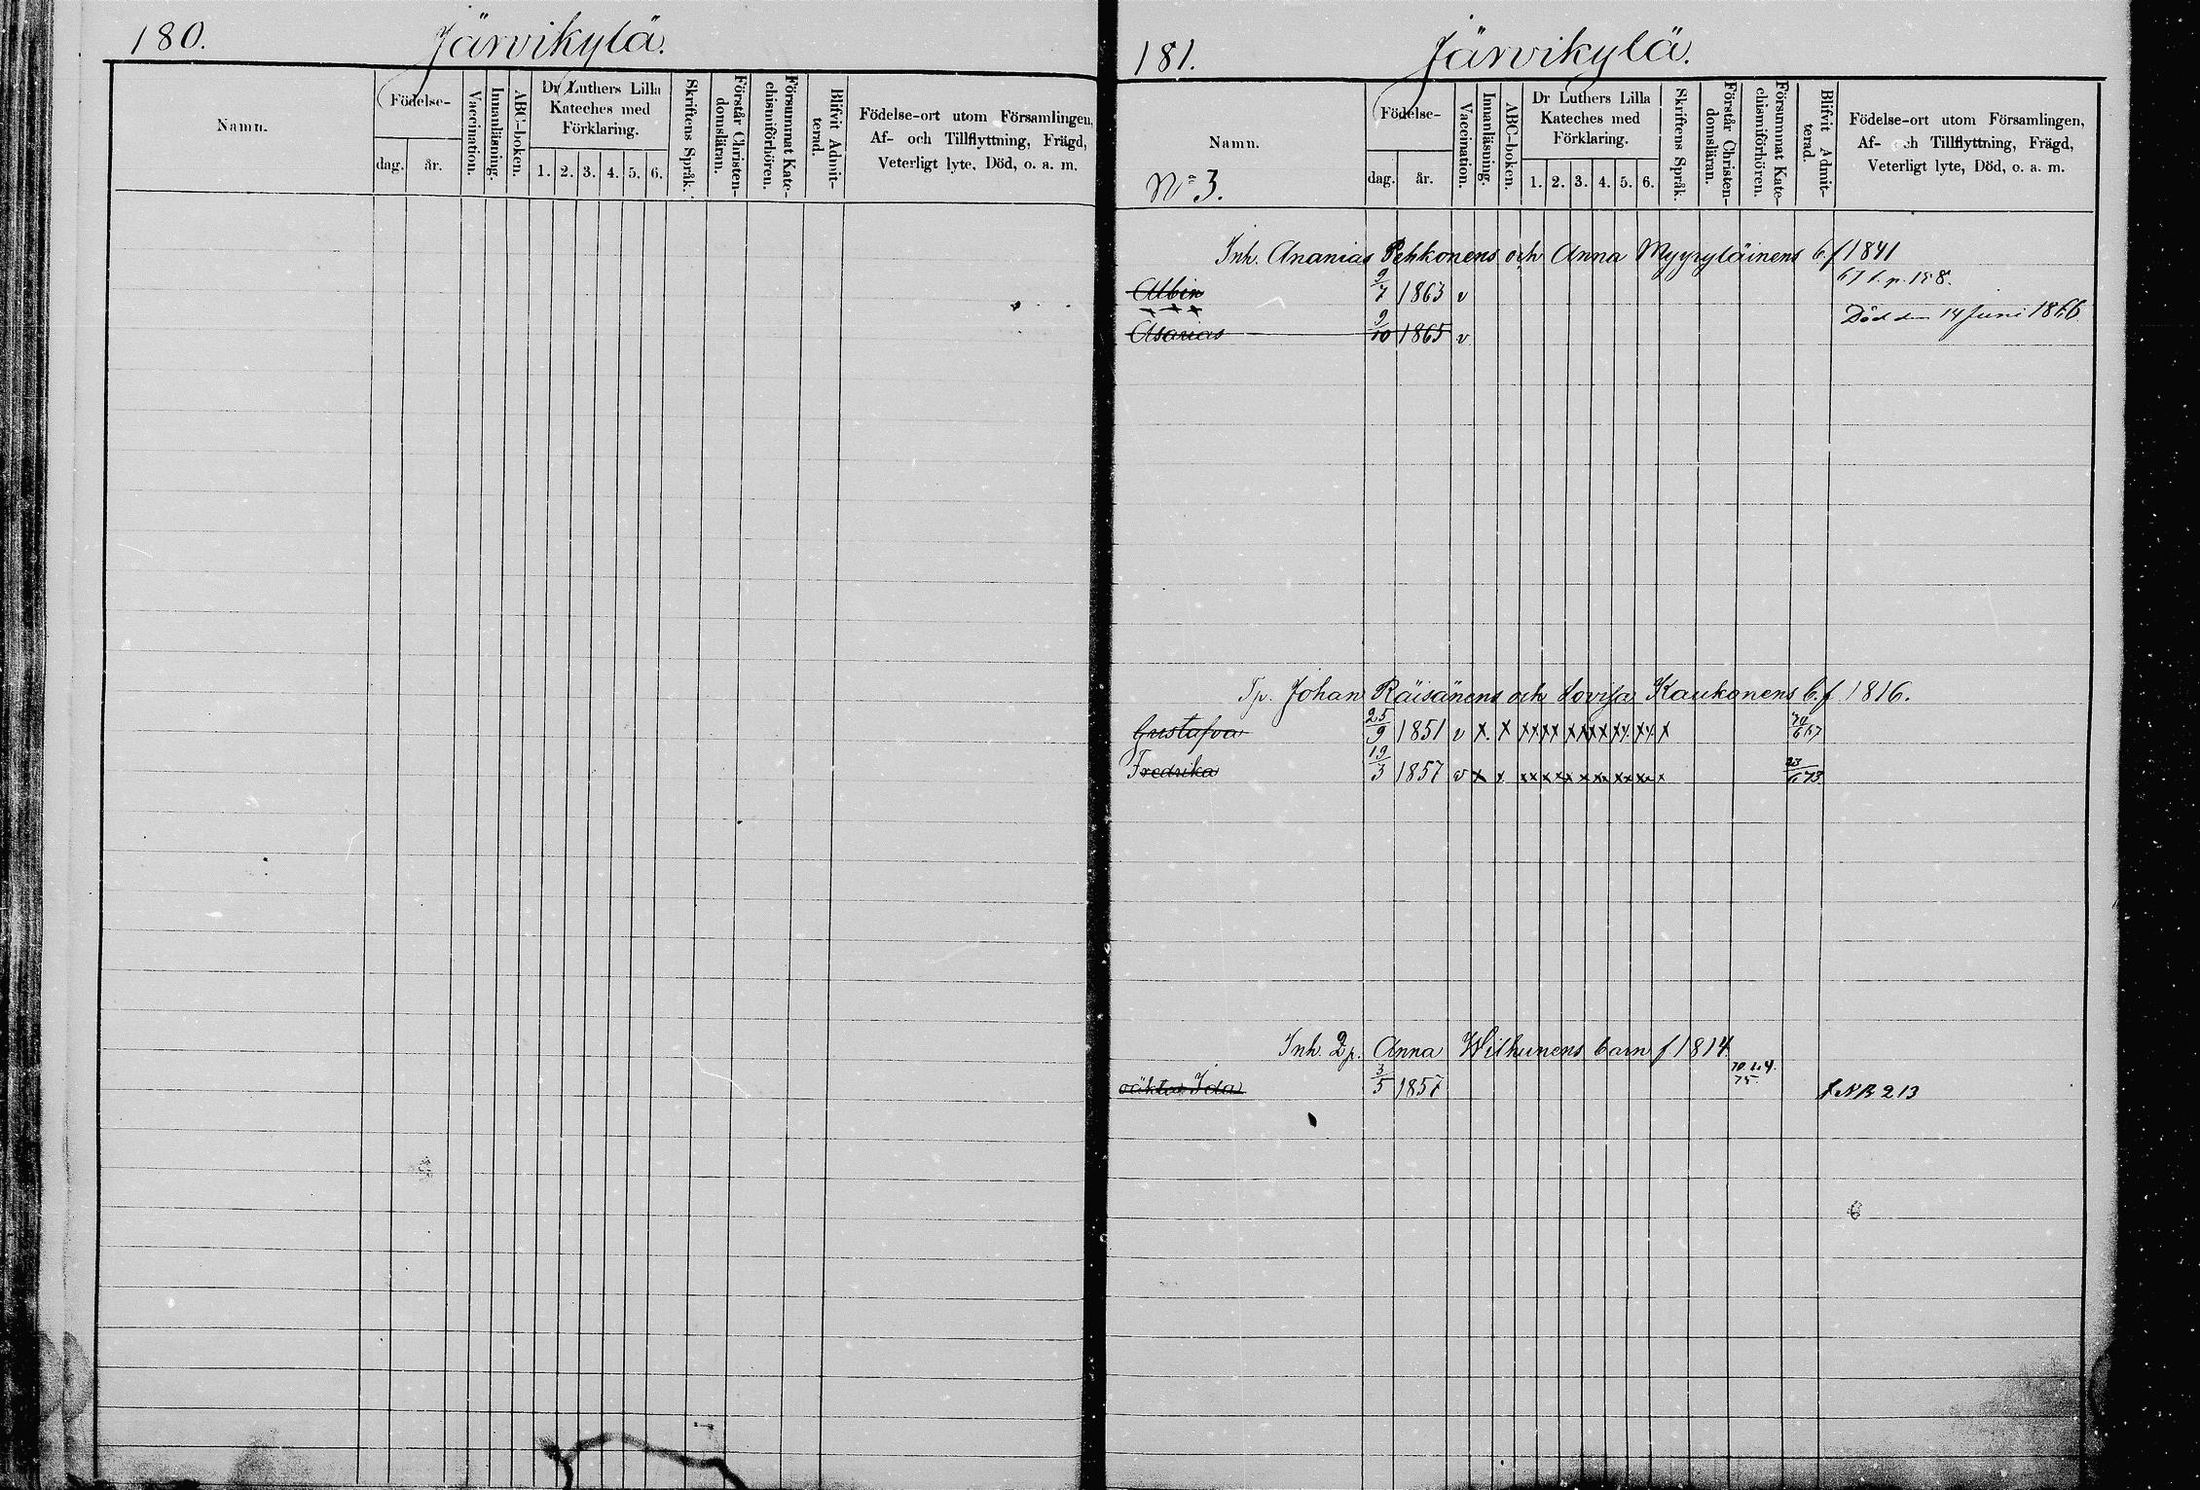 180.
Järvikylä.
Namn.
Födelse-
dag.
år.
Vaccination.
Innanläsning.
ABC-boken.
Dr Luthers Lilla
Kateches med
Förklaring.
1. 2. 3. 4. 5. 6.
Skriftens Språk.
Förstår Christen-
domsläran.
Försummat Kate-
chismiförhören.
Blifvit Admit-
terad.
Födelse-ort utom Församlingen,
Af- och Tillflyttning, Frägd,
Veterligt lyte, Död, o. a. m.
181.
Järvikylä.
Namn.
No 3.
Födelse-
dag.
år.
Vaccination.
Innanläsning.
ABC-boken.
Dr Luthers Lilla
Kateches med
Förklaring.
1. 2. 3. 4. 5. 6.
Skriftens Språk.
Förstår Christen-
domsläran.
Försummat Kate-
chismiförhören.
Blifvit Admit-
terad.
Födelse-ort utom Församlingen,
Af- och Tillflyttning, Frägd,
Veterligt lyte, Död, o. a. m.
Inh. Ananias Pehkonens och Anna Myyryläinens b. f 1841
Albin 9/7 1863 v
Asarias 9/10 1865 v Död den 14 Juni 1866
Tp. Johan Räisänens och Lovisa Kaukonens b. f 1816.
Gustafva 25/9 1851 v x x xx xx xx xx xx xx x
Fredrika 13/3 1857 v x x xx xx xx xx xx xx x 23/6 73
Inh. Qp. Anna Wilhunens barn f 1814
Ida 3/5 1857 213